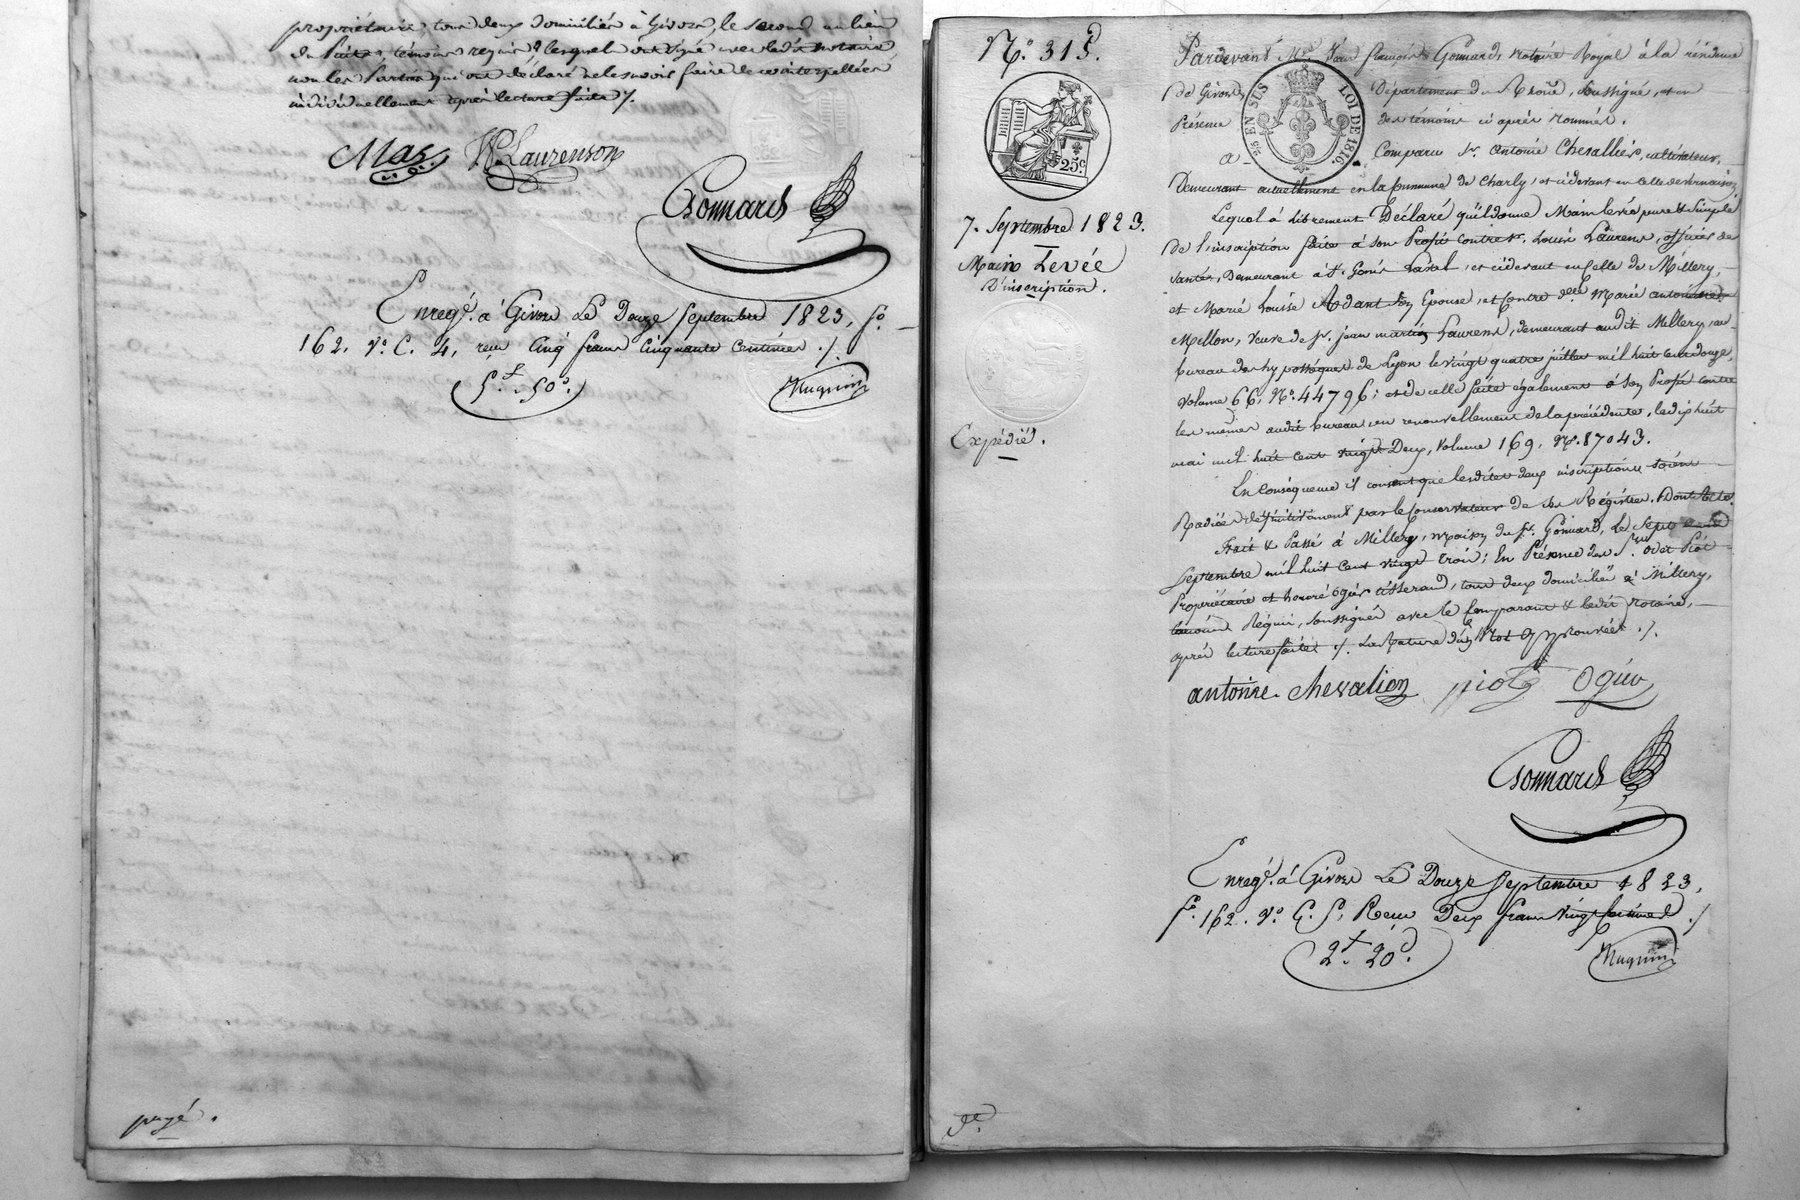 propriétaire, tous deux domiciliés à Givors, le second au lieu
du témoins requis, lesquels ont signé avec le dit notaire,
non les Parties qui ont déclaré ne le savoir faire de ce interpellées
individuellement après lecture faite ./.
Mas W Laurenson
Gonnard
Enregé. à Givors Le Douze Septembre 1823, fo.
162, Vo. C. 4, reçu Cinq francs Cinquante Centimes ./.
5.f 50c.
Muguin
payé.
No. 315.
25c.
7. Septembre 1823.
Main Levée
D'inscription.
Expédié.
Pardevant Me. Jean françois Gonnard Notaire Royal à la résidence
de Givors, Département du Rhône, soussigné, et en
Présence des témoins ci après nommés.
EN SUS LOI DE 1816.
a Comparu Sr. Antoine Chevallier, cultivateur,
Demeurant actuellement en la Commune de Charly, et cidevant en celle de Vernaison,
Lequel à librement Déclaré qu'il donne Main levée pure & Simple
De l'inscription faite à son Profit contre Sr. Louis Laurens, officier de
santé, Demeurant à St. Genis Laval, et cidevant en Celle de Millery,
et Marie Louise Ardant son Epouse, et Contre dlle. Marie antoinette
Millon, Veuve de Sr. jean martin Laurens, demeurant audit Millery, au
bureau des hypothèques de Lyon le vingt quatre juillet mil huit cent douze,
Volume 66, No. 44796; et de celle faite également à son Profit contre
les mêmes audit bureau, en renouvellement de la précédente, le dix huit
mai mil huit cent vingt Deux, Volume 169, No. 87043.
En Conséquence il consent que lesdites deux inscriptions soient
Radiées définitivement par le Conservateur de ses Régistres. Dont Acte.
Fait & Passé à Millery, maison du Sr. Gonnard, le sept
Septembre mil huit cent vingt trois; En Présence des Srs. odet Piot
Propriétaire et honoré ogier tisserand, tous deux domiciliés à Millery,
témoins Réquis, soussignés avec le Comparant & ledit Notaire,
après lecture faite ./. La Rature d'un Mot Approuvée ./.
antoine chevalier piot Ogier
Gonnard
Enregé. à Givors Le Douze Septembre 1823,
fo. 162. Vo. C. 5, Reçu Deux francs Vingt Centimes ./.
2.f 20c.
Muguin